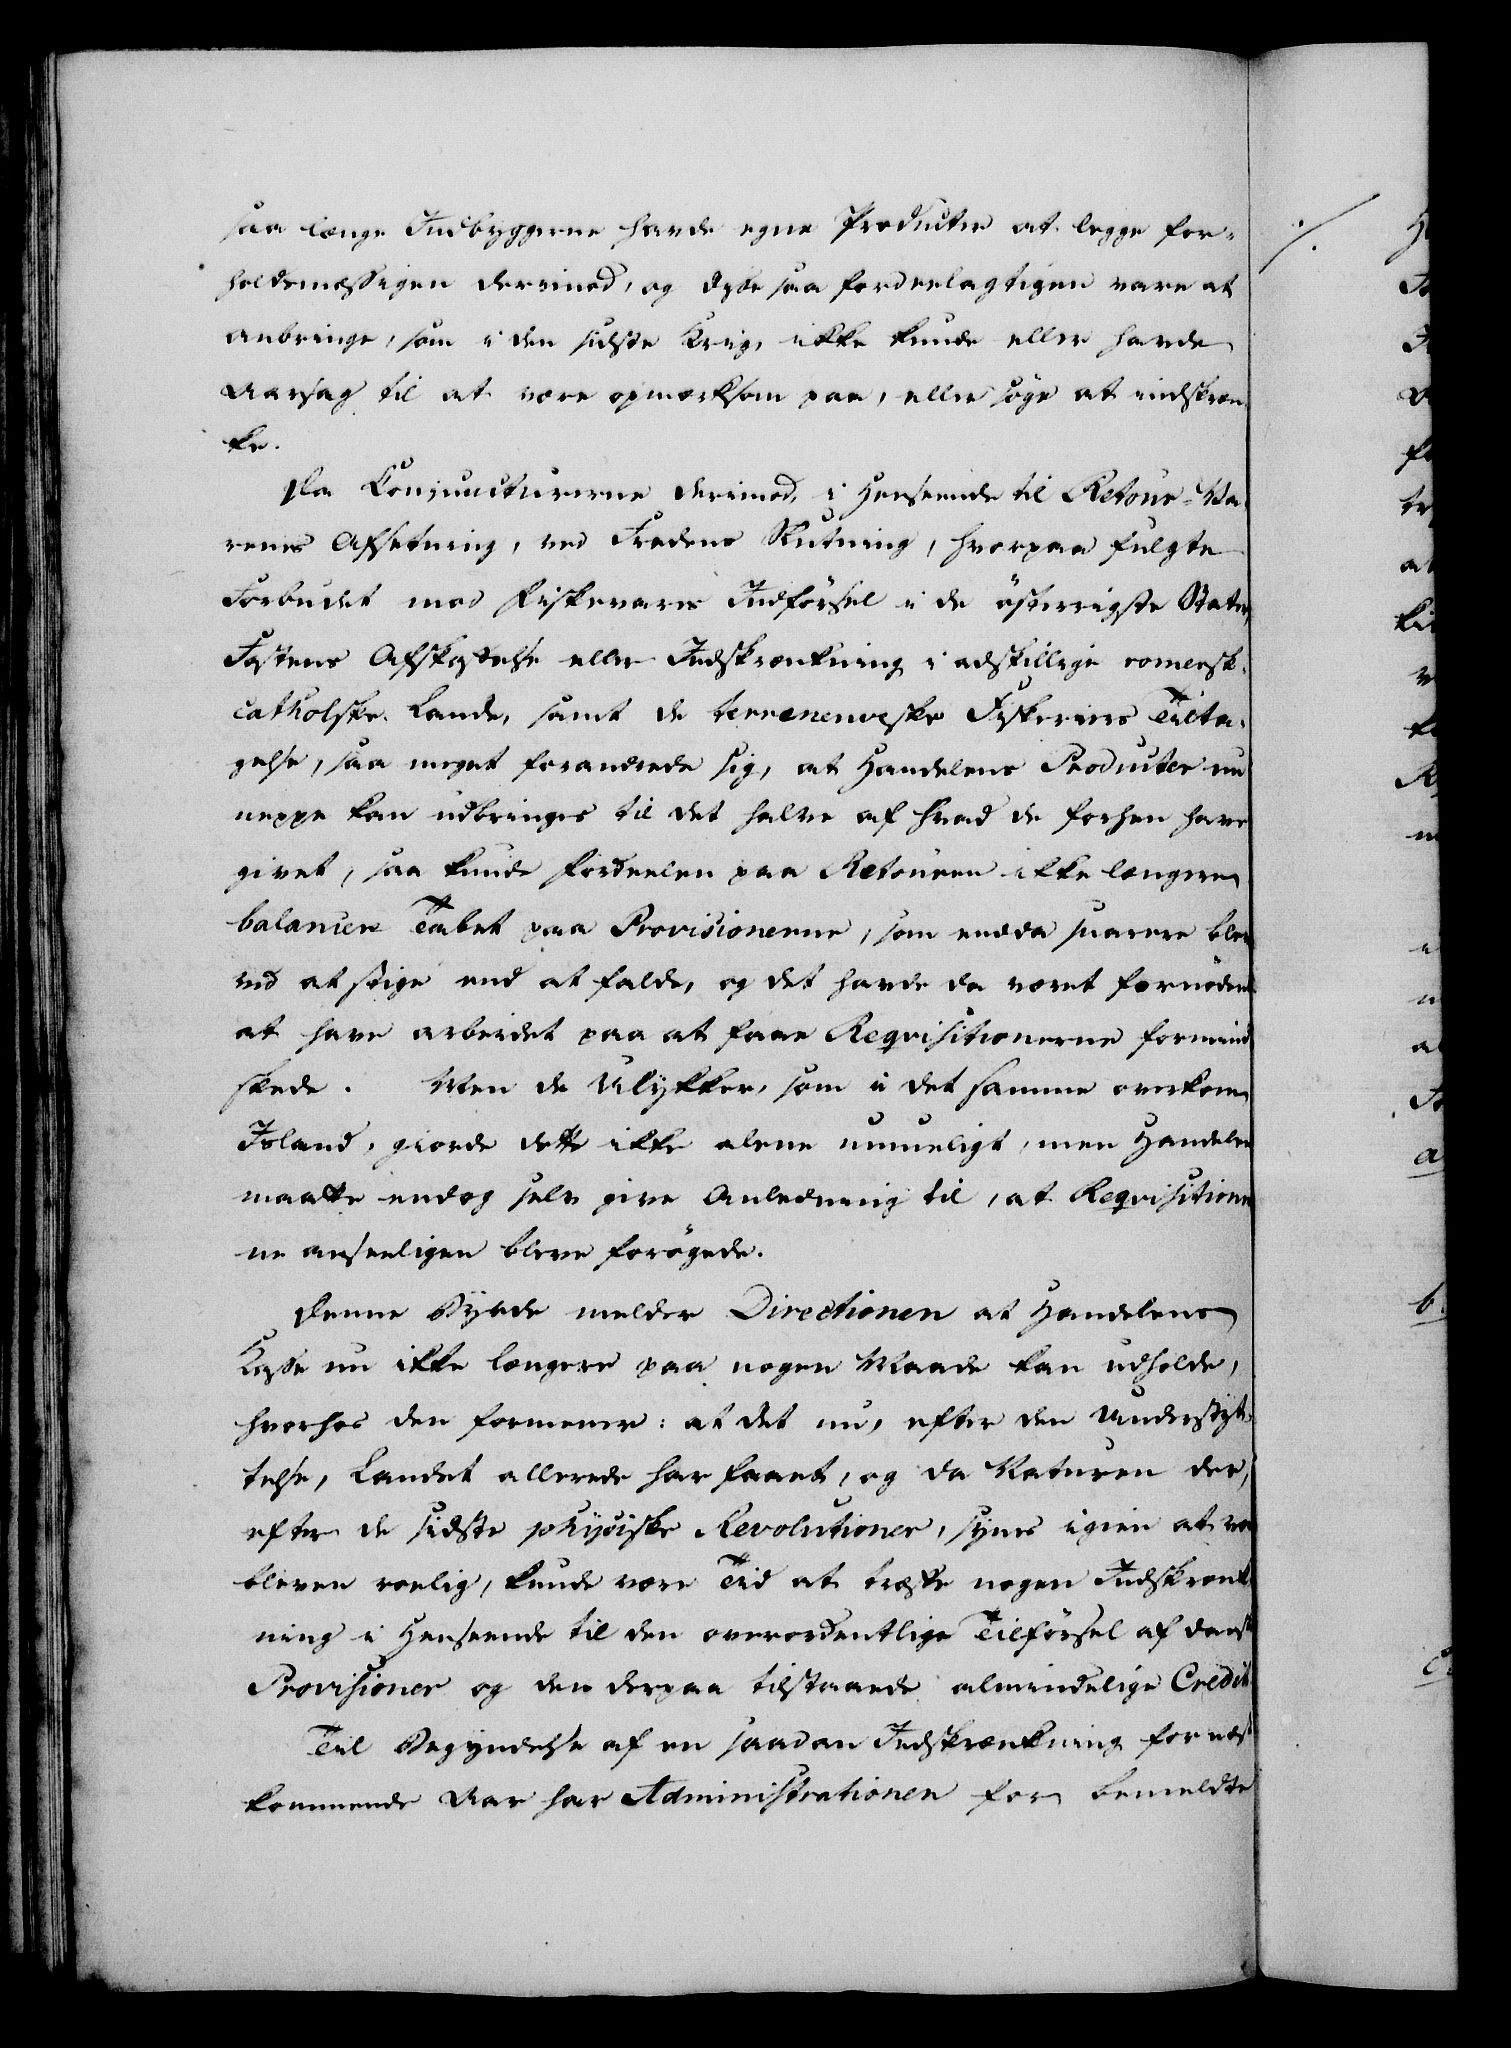 saa længe Indbyggerne havde egne Producter at legge for-
holdsmæssigen derimod, og disse saa fordeelagtigen vare at
anbringe, som i den sidste Krig, ikke kunde eller havde
Aarsag til at være opmærksom paa, eller søge at indskræn
ke.
Da Conjuncturerne derimod, i Henseende til Retour-Va-
renes Afsetning, ved Fredens Slutning, hvorpaa fulgte
Forbudet mod Fiskevares Indførsel i de østerrigste Stater,
Fastens Afskaffelse eller Indskrænkning i adskillige romersk-
catholske Lande, samt de terreneuvske Fiskeriers Tilta-
gelse, saa meget forandrede sig, at Handelens Producter nu
neppe kan udbringes til det halve af hvad de forhen have
givet, saa kunde Fordeelen paa Retouren ikke længere
balancere Tabet paa Provisionerne, som endda snarere blev
ved at stige end at falde, og det havde da været fornødent
at have arbeidet paa at faae Reqvisitionerne formind
skede. Men de Ulykker, som i det samme overkom
Island, giorde dette ikke alene umueligt, men Handelen
maatte endog selv give Anledning til, at Reqvisitioner
ne anseeligen bleve forøgede.
Denne Byrde melder Directionen at Handelens
Kasse nu ikke længere paa nogen Maade kan udholde,
hvorhos den formener: at det nu, efter den Understøt-
telse, Landet allerede har faaet, og da Naturen der,
efter de sidste phÿsiske Revolutioner, synes igien at være
bleven roelig, kunde være Tid at træffe nogen Indskrænk
ning i Henseende til den overordentlige Tilførsel af danske
Provisioner og den derpaa tilstaaede almindelige Credit.
Til Begyndelse af en saadan Indskrænkning for næst
kommende Aar har Administrationen for bemeldte